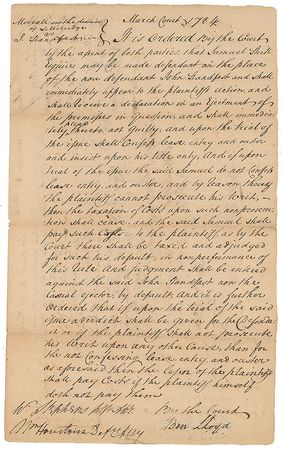 March Court 1784
Morecott on the demise
of Lillibridge
vs
J. Standfast
It is Ordered By the Court
by the assent of both parties, that Samuel
may be made defendant in the place
of the now defendant John Standfast and shall
immediately appear to the plaintiffs action, and
shall receive a declaration in an Ejectment of
the premises in question, and shall immedi-
ately plead thereto, not Guilty, and upon the trial of
the issue shall Confess lease entry and ouster
and insist upon his title only. And if upon
trial of the issue the said Samuel do not Confess
lease entry, and ouster, and by reason thereof
the plaintiff cannot prosecute his Writ,—
then the taxation of Costs upon such nonprosecu-
tion shall cease, and the said Samuel shall
pay such Costs to the plaintiff, as by the
Court there shall be taxed and adjudged
for such his default, in nonperformance of
this rule and judgment shall be entered
against the said John Standfast now the
Casual ejector by default; And it is further
Ordered that if upon the trial of the said
issue a verdict shall be given for the Defenda
nt or if the plaintiff shall not prosecute
his Writ upon any other Cause, than for
the not Confessing lease, entry, and ouster
as aforesaid then the lessor of the plaintiff
shall pay Costs if the plaintiff himself
doth not pay them
Wm Stephens
By the Court
Wm Houstoun Defts Atty
Ben Lloyd